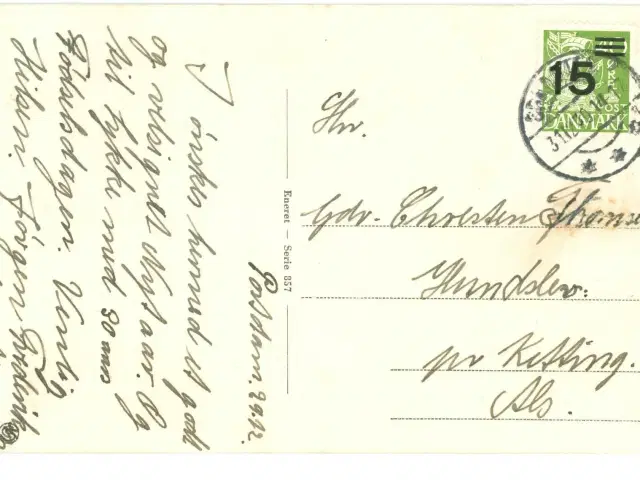 Porsdam. 29.12.
I ønskes hermed et godt
og velsignet Nytaar. Og
til Lykke med 30 aars
Fødselsdagen. Venlig
Hilsen. Jörgen
Eneret — Serie 857
15
ØRE
POST
DANMARK
31.12.
Hr.
Gdr. Chresten
Hundslev.
pr Ketting.
Als.